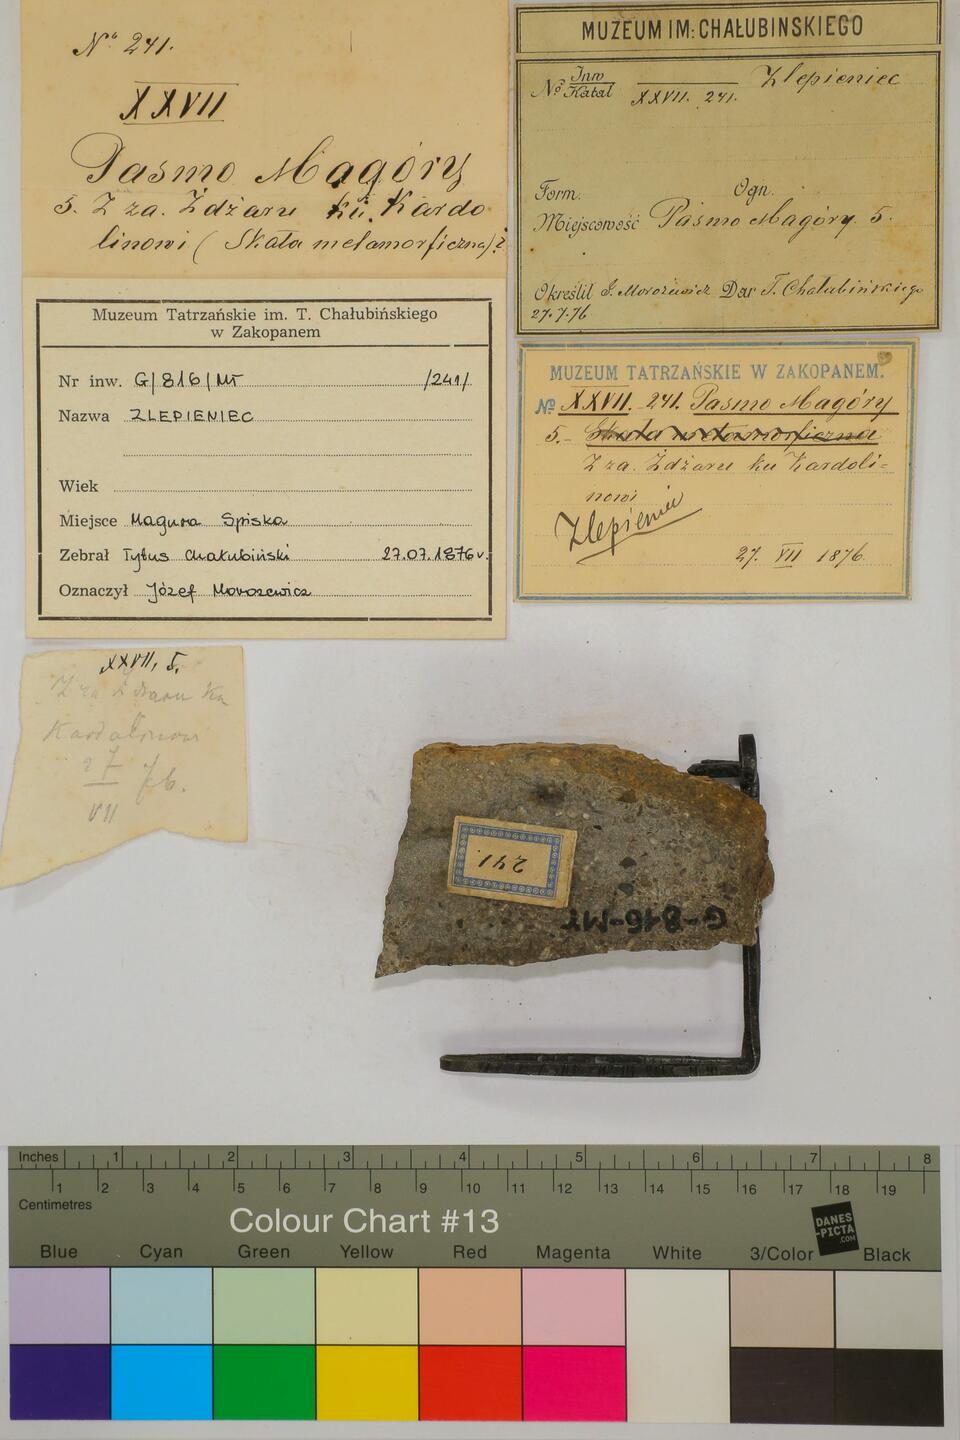 No 241.
XXVII
Pasmo Magóry
5. Z za. Żdżaru ku Kardo
linowi (Skała metamorficzna)?
MUZEUM IM: CHAŁUBINSKIEGO
No Inw
Katal
XXVII. 241.
Zlepieniec
Form.
Ogn.
Miejscowość Pasmo Magóry 5.
Określił J. Morozewicz Dar T. Chałubińskiego
27.7.76
Muzeum Tatrzańskie im. T. Chałubińskiego
w Zakopanem
Nr inw. G/816/MT /241/
Nazwa ZLEPIENIEC
Wiek
Miejsce Magura Spiska
Zebrał Tytus Chałubiński 27.07.1876 r.
Oznaczył Józef Morozewicz
MUZEUM TATRZAŃSKIE W ZAKOPANEM.
No XXVII. 241. Pasmo Magóry
5. Skała metamorficzna
Z za. Żdżaru ku Kardoli=
nowi
Zlepieniec
27. VII 1876
XXVII, 5.
Z za Żdżaru ku
Kardolinowi
27 76.
VII
241.
G-816-MT
Inches 1 2 3 4 5 6 7 8
1 2 3 4 5 6 7 8 9 10 11 12 13 14 15 16 17 18 19
Centimetres
Colour Chart #13
DANES
-PICTA
.COM
Blue Cyan Green Yellow Red Magenta White 3/Color Black